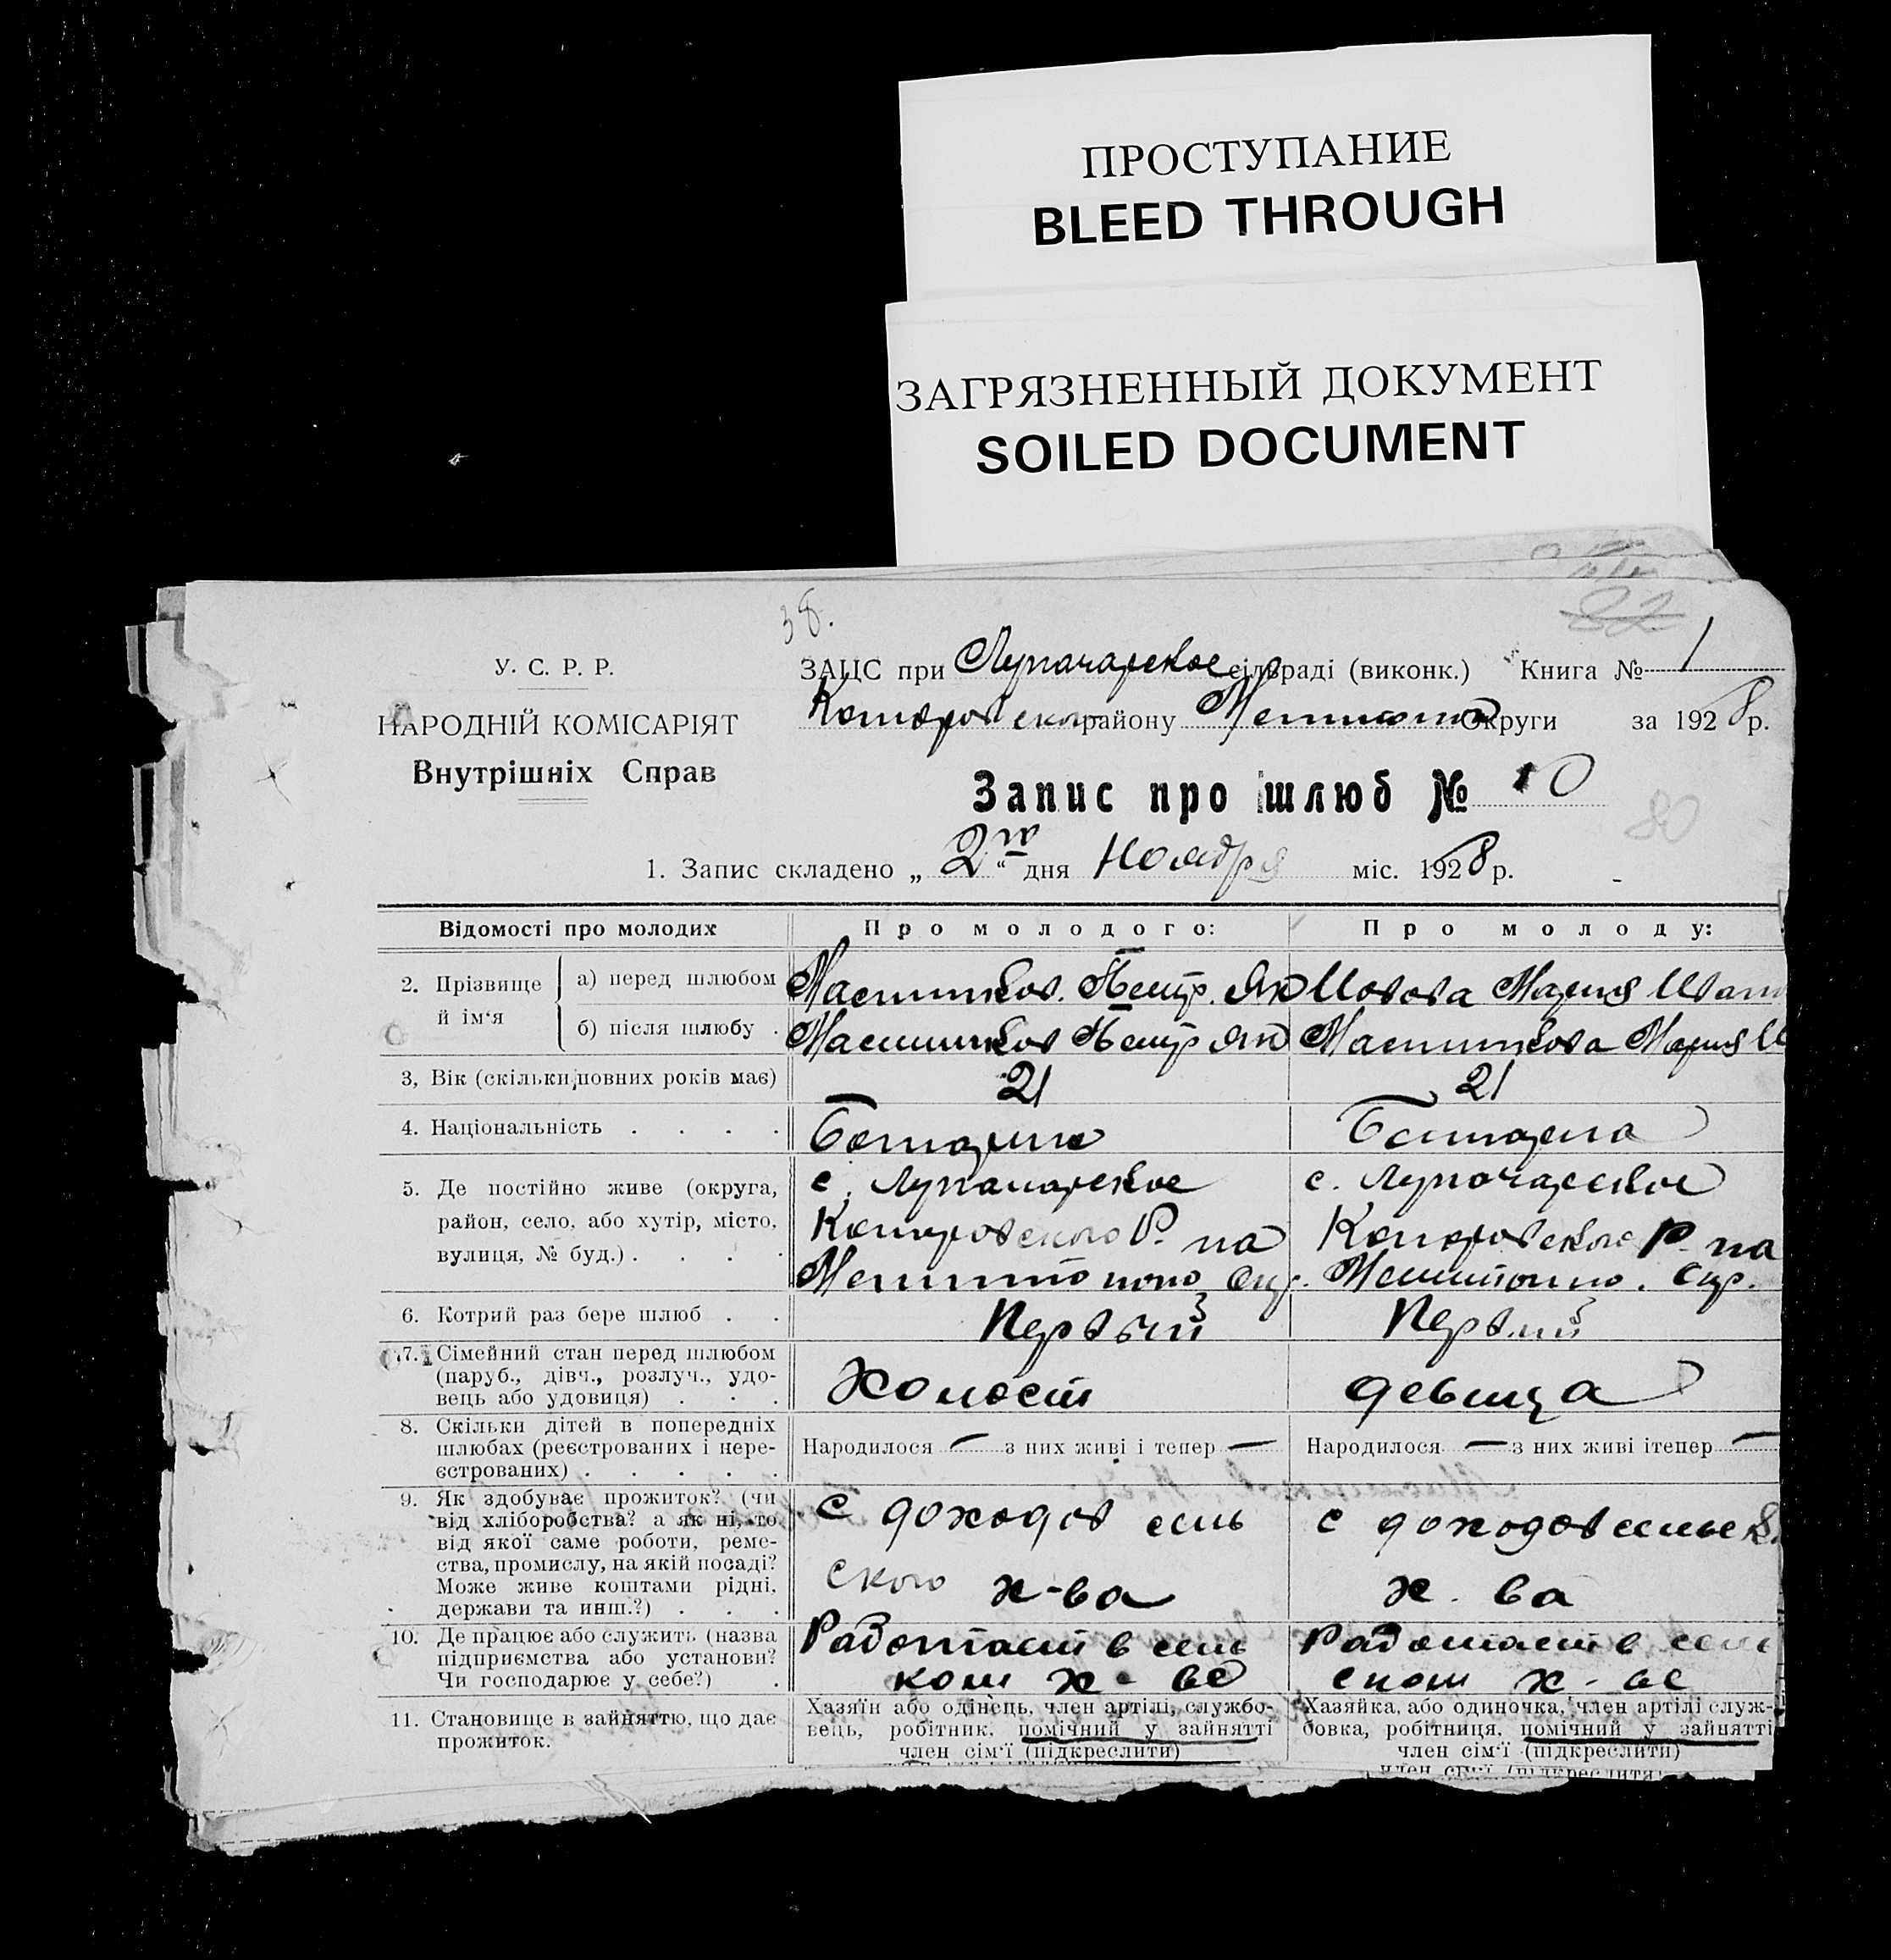 ПРОСТУПАНИЕ
BLEED THROUGH
ЗАГРЯЗНЕННЫЙ ДОКУМЕНТ
SOILED DOCUMENT
38.
82
У. С. Р. Р.
НАРОДНІЙ КОМІСАРІЯТ
Внутрішніх Справ
ЗАЦС при Луначарское сільраді (виконк.) Книга № 1
району Округи за 1928 р.
Запис про шлюб № 10
80
1. Запис складено „ 2го “ дня Ноября міс. 1928 р.
Відомості про молодих
Про молодого:
Про молоду:
2. Прізвище й ім‘я
а) перед шлюбом
Петр. Як
Мария Иван
б) після шлюбу .
Петр Як
Мария И
3, Вік (скільки повних років має)
21
21
4. Національність . . . .
Болгарин
Болгарка
5. Де постійно живе (округа, район, село, або хутір, місто, вулиця, № буд.) . . . .
с. Луначарское
Р. на
Мелитопо Окр.
с. Луначарское
Р-на
Мелитопо. Окр.
6. Котрий раз бере шлюб . .
Первый
Первый
7. Сімейний стан перед шлюбом
(паруб., дівч., розлуч., удо-
вець або удовиця) . . .
Холост
девица
8. Скільки дітей в попередніх
шлюбах (реєстрованих і нере-
єстрованих) . . . . .
Народилося — з них живі і тепер —
Народилося — з них живі ітепер —
9. Як здобуває прожиток? (чи
від хліборобства? а як ні, то
від якої саме роботи, реме-
ства, промислу, на якій посаді?
Може живе коштами рідні,
держави та инш.?) . . .
с доходов сель
ского х-ва
с доходов сельск
х. ва
10. Де працює або служить (назва
підприємства або установи?
Чи господарює у себе?) .
Работает в сель
ком х-ве
Работает в сель
ском х-ве
11. Становище в зайняттю, що дає
прожиток.
Хазяїн або одінець, член артілі, службо-
вець, робітник, помічний у зайнятті
член сім‘ї (підкреслити)
Хазяйка, або одиночка, член артілі служ-
бовка, робітниця, помічний у зайнятті
член сім‘ї (підкреслити)
член сім‘ї (підкреслити)